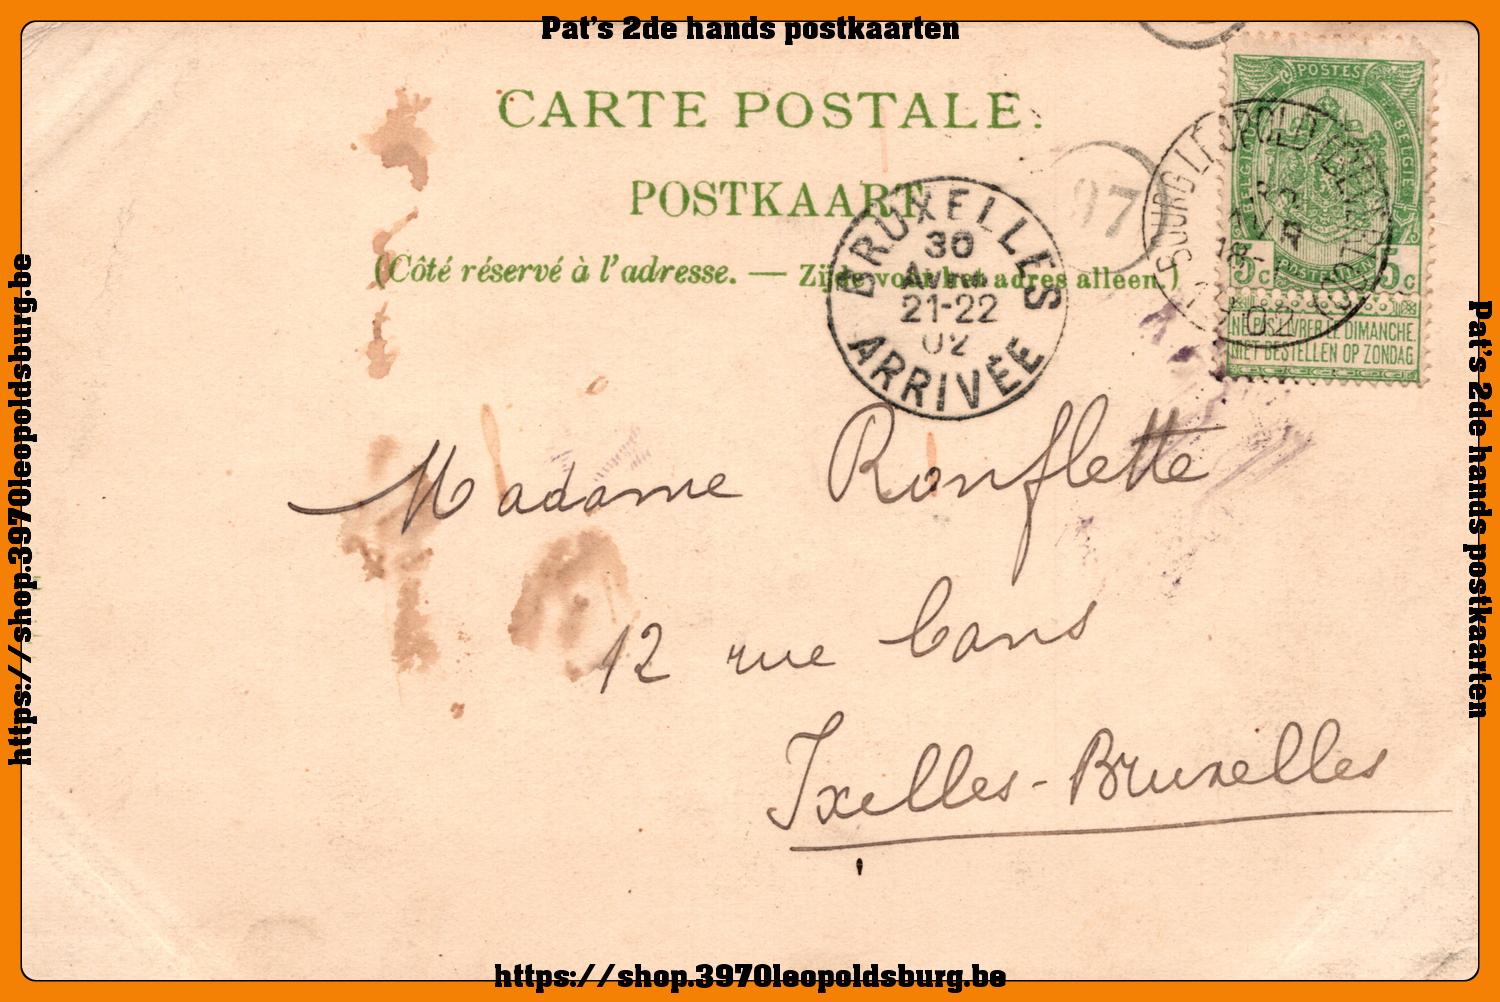 Pat's 2de hands postkaarten
CARTE POSTALE.
POSTKAART
(Côté réservé à l'adresse. — Zijde voor het adres alleen.)
BRUXELLES
30
21-22
02
ARRIVÉE
97
BOURG LEOPOLD
02
POSTES
BELGIQUE
BELGIË
POSTERIJEN
5c 5c
NE PAS LIVRER LE DIMANCHE.
NIET BESTELLEN OP ZONDAG
Madame Ronflette
12 rue Cans
Ixelles-Bruxelles
https://shop.3970leopoldsburg.be
Pat's 2de hands postkaarten
https://shop.3970leopoldsburg.be